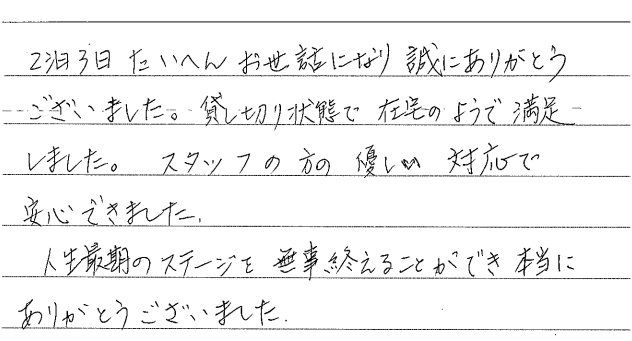 2泊3日 たいへん お世話になり 誠にありがとう
ございました。貸し切り状態で 在宅のようで 満足
しました。 スタッフの方の 優しい 対応で
安心できました.
人生最期のステージを 無事終えることができ 本当に
ありがとうございました.